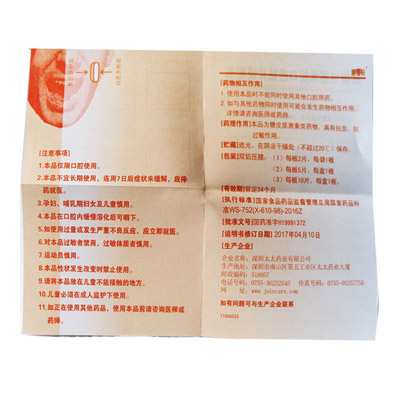 [注意事项]
1.本品仅限口腔使用。
2.本品不宜长期使用、连用7日后症状未缓解，应停
药就医。
3.孕妇、哺乳期妇女及儿童慎用。
4.本品在口腔内缓慢溶化后可咽下。
5.如使用过量或发生严重不良反应，应立即就医。
6.对本品过敏者禁用，过敏体质者慎用。
7.运动员慎用。
8.本品性状发生改变时禁止使用。
9.请将本品放在儿童不能接触的地方。
10.儿童必须在成人监护下使用。
11.如正在使用其他药品，使用本品前请咨询医师或
药师。
[药物相互作用]
1.使用本品时不能同时使用其他口腔用药。
2.如与其他药物同时使用可能会发生药物相互作用，
详情请咨询医师或药师。
[药理作用]本品为糖皮质激素类药物，具有抗炎、抗
过敏作用。
[贮藏]遮光，在阴凉干燥处（不超过20℃）保存。
[包装]双铝压膜：（1）每板2片，每盒1板
（2）每板5片，每盒1板
（3）每板10片，每盒1板
[有效期]暂定24个月
[执行标准]国家食品药品监督管理总局国家药品标
准WS-752(X-610-98)-2016Z
[批准文号]国药准字H19991372
[说明书修订日期]2017年04月10日
[生产企业]
企业名称：深圳太太药业有限公司
生产地址：深圳市南山区第五工业区太太药业大厦
邮政编码：518057
电话号码：0755-86252645 传真号码：0755-86252758
网 址：www.joincare.com
如有问题可与生产企业联系